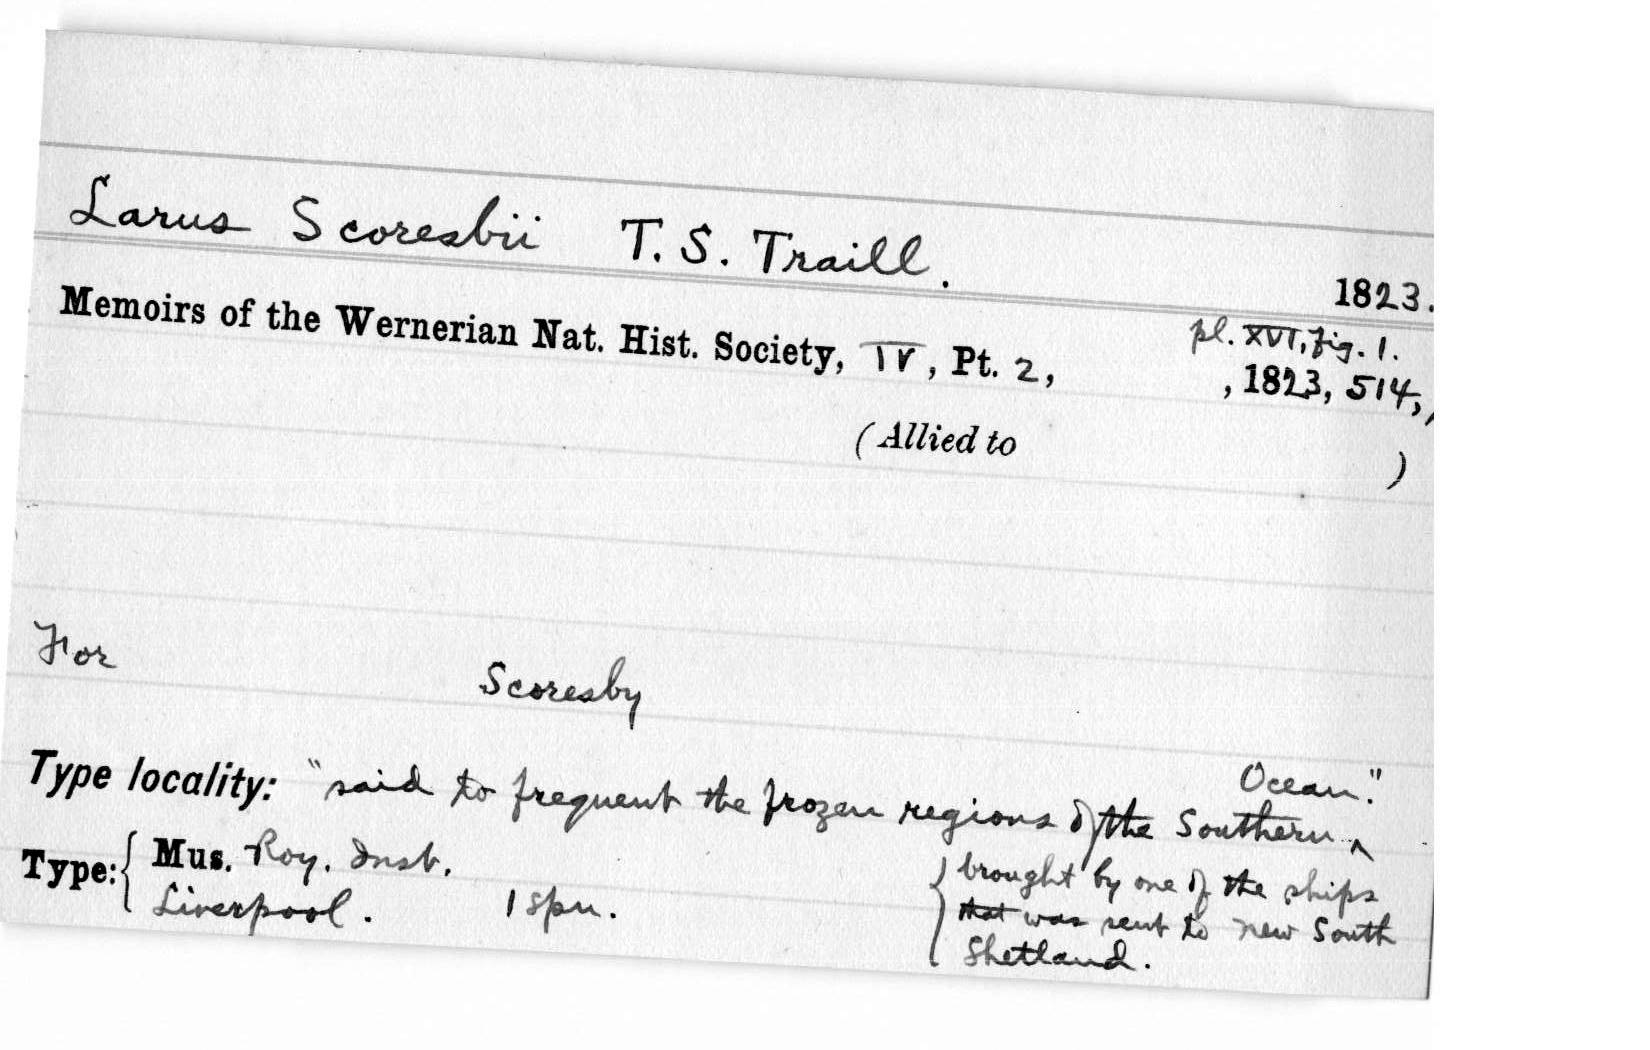 Larus Scoresbii T. S. Traill.
1823.
Memoirs of the Wernerian Nat. Hist. Society, IV, Pt. 2, , 1823, 514,
pl. XVI, fig. 1.
(Allied to )
For Scoresby
Type locality: "said to frequent the frozen regions of the Southern ^ Ocean."
Type: { Mus. Roy. Inst.
Liverpool. 1 spn.
{ brought by one of the ships
that was sent to new South
Shetland.